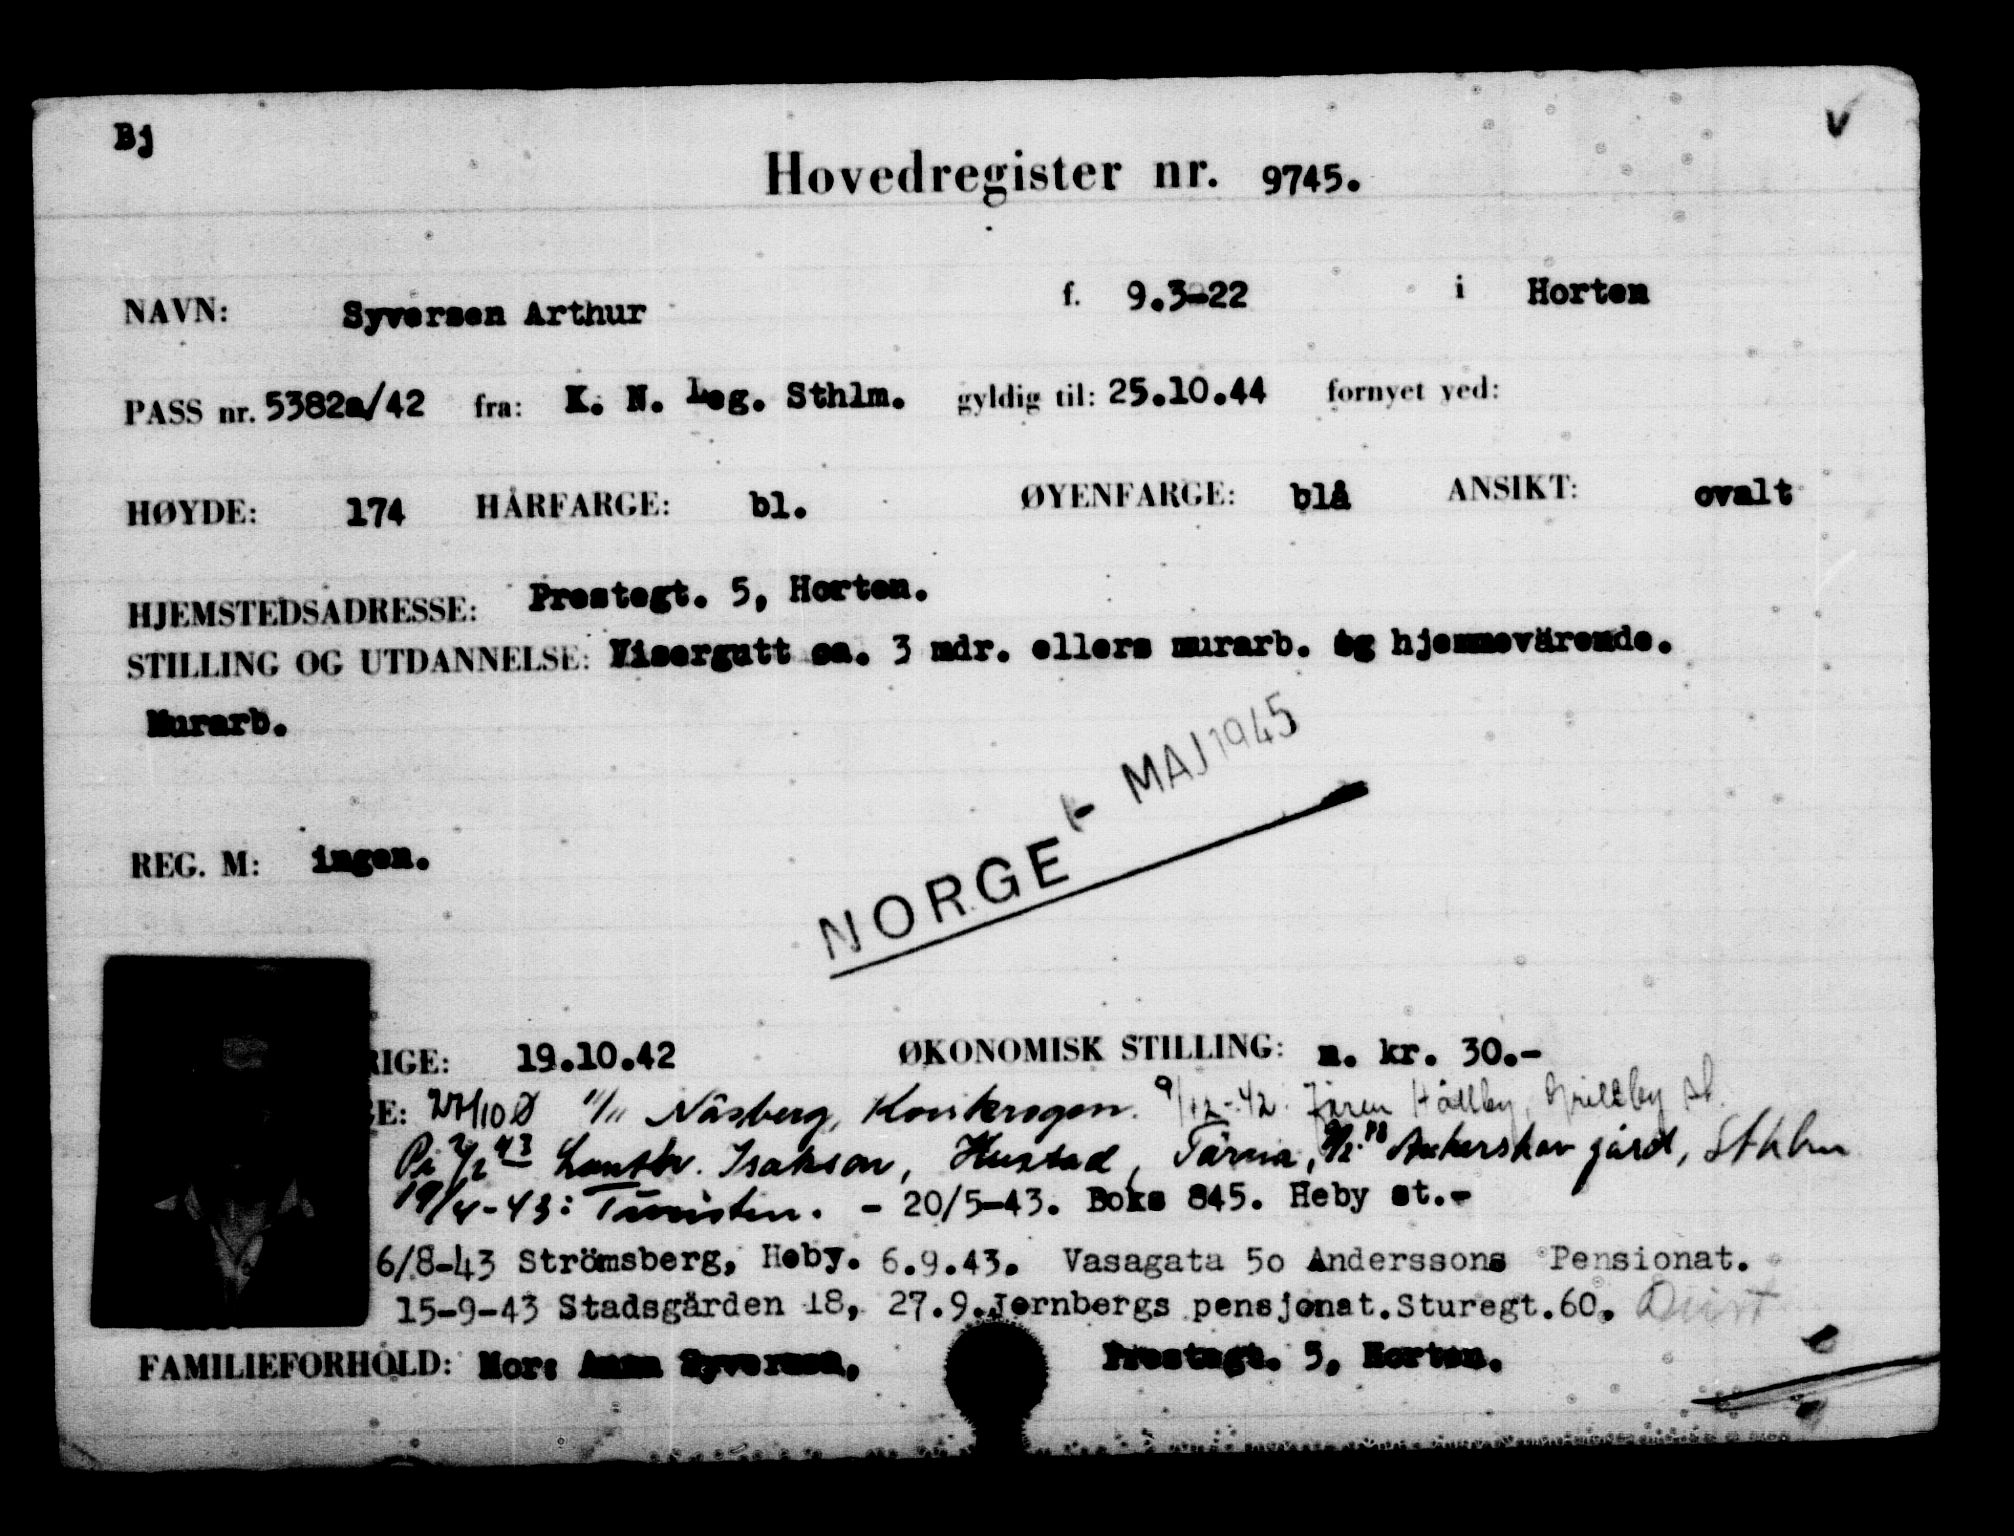 Bj
V
Hovedregister nr. 9745.
NAVN: Syversen Arthur f. 9.3-22 i Horten
PASS nr. 5382a/42 fra: K. N. Leg. Sthlm. gyldig til: 25.10.44 fornyet ved:
HØYDE: 174 HÅRFARGE: bl. ØYENFARGE: blå ANSIKT: ovalt
HJEMSTEDSADRESSE: Prestegt. 5, Horten.
STILLING OG UTDANNELSE: Visergutt ca. 3 mdr. ellers murarb. og hjemmevärende.
Murarb.
MAJ 1945
NORGE
REG. M: ingen.
RIGE: 19.10.42 ØKONOMISK STILLING: n. kr. 30.-
GE: 27/10 Ø 11/11 Näsberg, 9/12-42.
Isakson, Stklm
19/4-43: Turisten. - 20/5-43. Boks 845. Heby st.-
6/8-43 Strömsberg, Heby. 6.9.43. Vasagata 50 Anderssons Pensionat.
15-9-43 Stadsgården 18, 27.9. Jernbergs pensjonat. Sturegt. 60.
FAMILIEFORHOLD: Mor: Anna Syversen, Prestegt. 5, Horten.